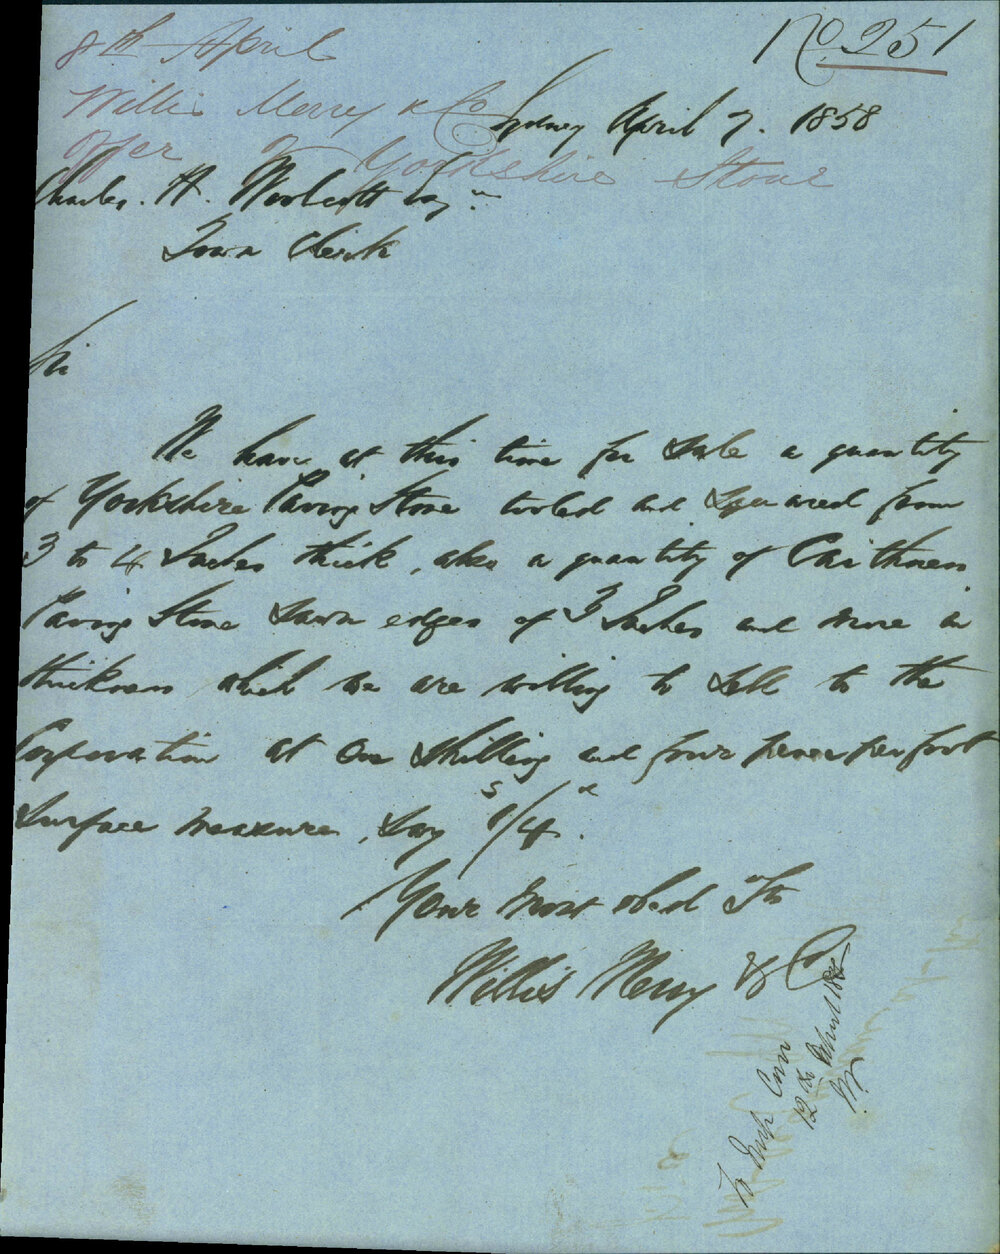 No. 251
8th April
Willis Merry & Co
offer of Yorkshire Stone
Sydney April 7. 1858
Charles. H. Woolcott Esqr.
Town Clerk
Sir
We have at this time for Sale a quantity
of Yorkshire Paving Stone tooled and Squared from
3 to 4 Inches thick, also a quantity of Caithness
Paving Stone Sawn edges of 3 Inches and more in
thickness which we are willing to Sell to the
Corporation at One Shilling and four pence per foot
Surface measure, Say 1s/4d.
Your most obed Sts
Willis Merry & Co
To Imp Com
12th April 1858
W.